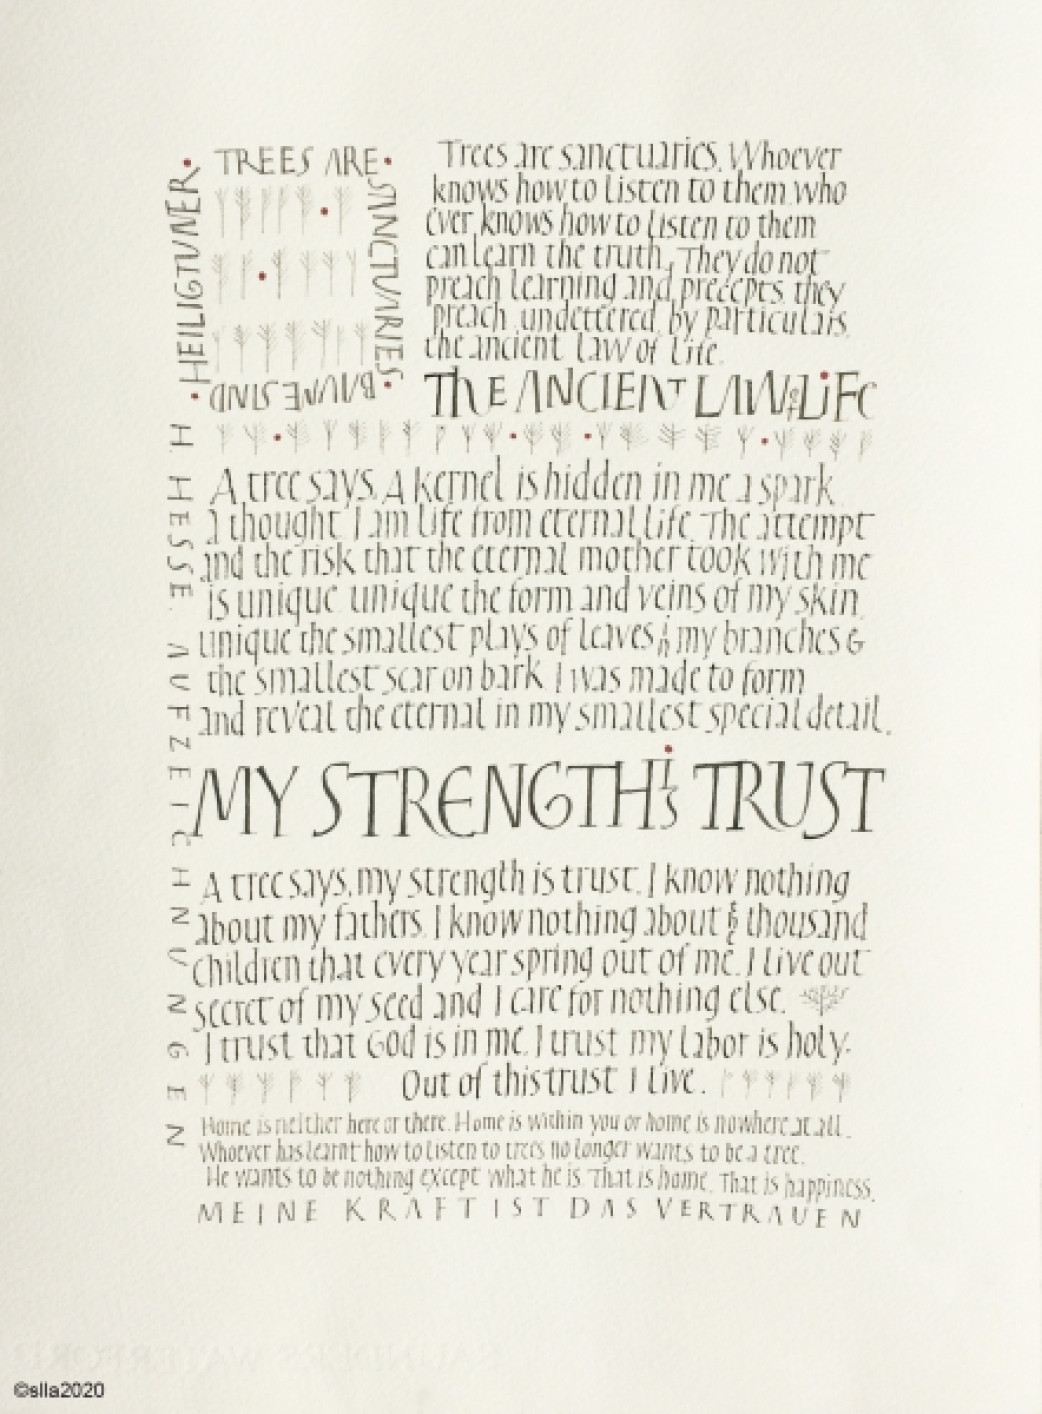 TREES ARE
SANCTUARIES
BAUME SIND
HEILIGTUMER
Trees are sanctuaries. Whoever
knows how to listen to them who
ever knows how to listen to them
can learn the truth. They do not
preach learning and precepts, they
preach undettered by particulars,
the ancient law of life.
THE ANCIENT LAW of LIFE
A tree says, A kernel is hidden in me a spark,
a thought, I am life from eternal life. The attempt
and the risk that the eternal mother took with me
is unique, unique the form and veins of my skin,
unique the smallest plays of leaves in my branches &
the smallest scar on bark. I was made to form
and reveal the eternal in my smallest special detail.
MY STRENGTH IS TRUST
A tree says, my strength is trust. I know nothing
about my fathers. I know nothing about the thousand
children that every year spring out of me. I live out
secret of my seed and I care for nothing else.
I trust that God is in me. I trust my labor is holy.
Out of this trust I live.
Home is neither here or there. Home is within you or home is nowhere at all.
Whoever has learnt how to listen to trees no longer wants to be a tree.
He wants to be nothing except what he is. That is home. That is happiness.
MEINE KRAFT IST DAS VERTRAUEN
H. HESSE. AUFZEICHNUNGEN
©slla2020